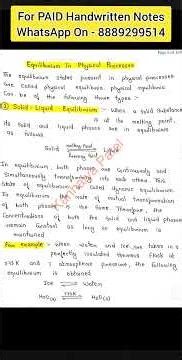 For PAID Handwritten Notes
WhatsApp On - 8889299514
Equilibrium In Physical Processes
The equilibrium states present in physical processes
are called physical equilibrium. physical equilibria
Can be of the following types :-
Solid - Liquid Equilibrium :- when a solid substance
is at the melting point,
its solid and liquid phases are in equilibrium
as follows
Solid melting Point
In equilibrium, both phases are continuously and
Simultaneously into each other. This
State of equilibrium is called dynamic equilibrium
In equilibrium, the rate of mutual transformation
of both phases is the same. Therefore, the
Concentrations of both the solid and liquid phases
remain constant as long as equilibrium is
maintained
For example - when water and ice are taken in a
perfectly insulated thermos flask at
273K and 1 atmosphere pressure, the following
equilibrium is obtained
Ice water
H₂O(s) 273K H₂O(l)